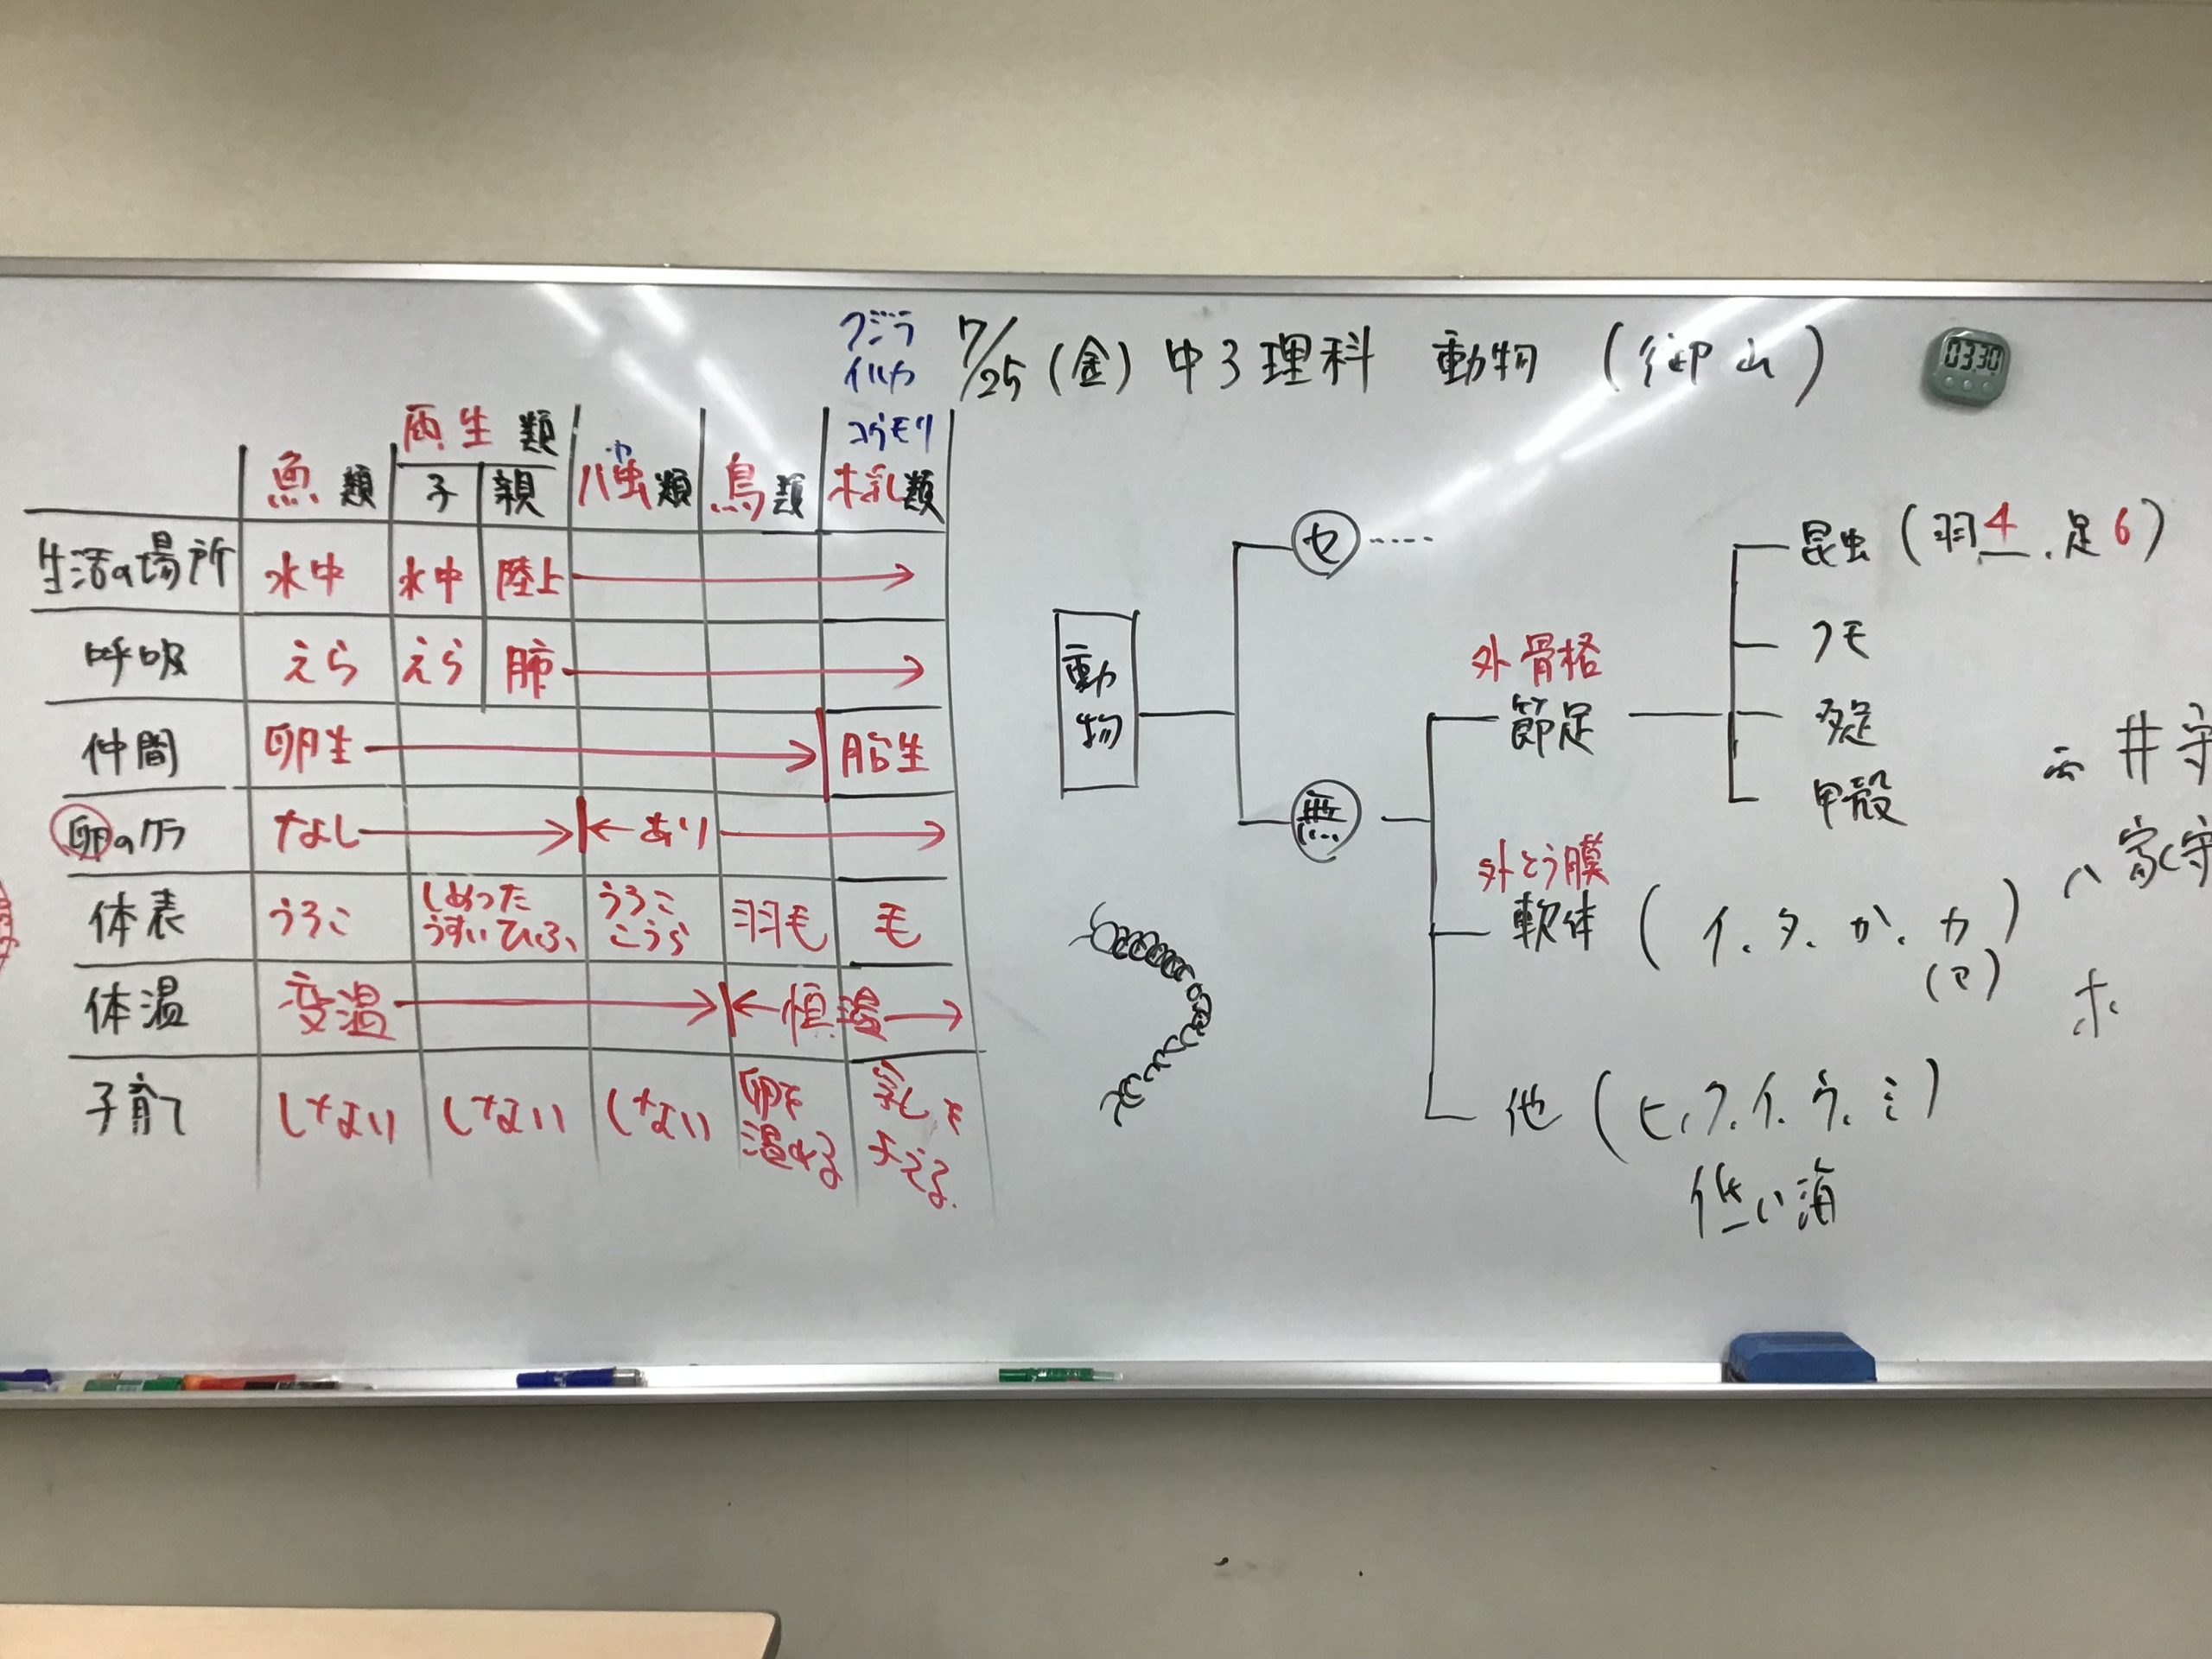 クジラ
イルカ
コウモリ
7/25 (金) 中3理科 動物 (御山)
03:30
魚類 両生類 ハ虫類 鳥類 ホ乳類
子 親
生活の場所 水中 水中 陸上
呼吸 えら えら 肺
仲間 卵生 胎生
卵のカラ なし あり
体表 うろこ しめった うろこ 羽毛 毛
うすいひふ こうら
体温 変温 恒温
子育て しない しない しない 卵を 乳を
温める 与える
動物
セ
無
外骨格
節足
昆虫 (羽4、足6)
クモ
多足
甲殻
外とう膜
軟体 (イ、タ、か、カ)
(マ)
他 (ヒ、ク、イ、ウ、ミ)
低い海
両 井守
ハ 家守
ホ